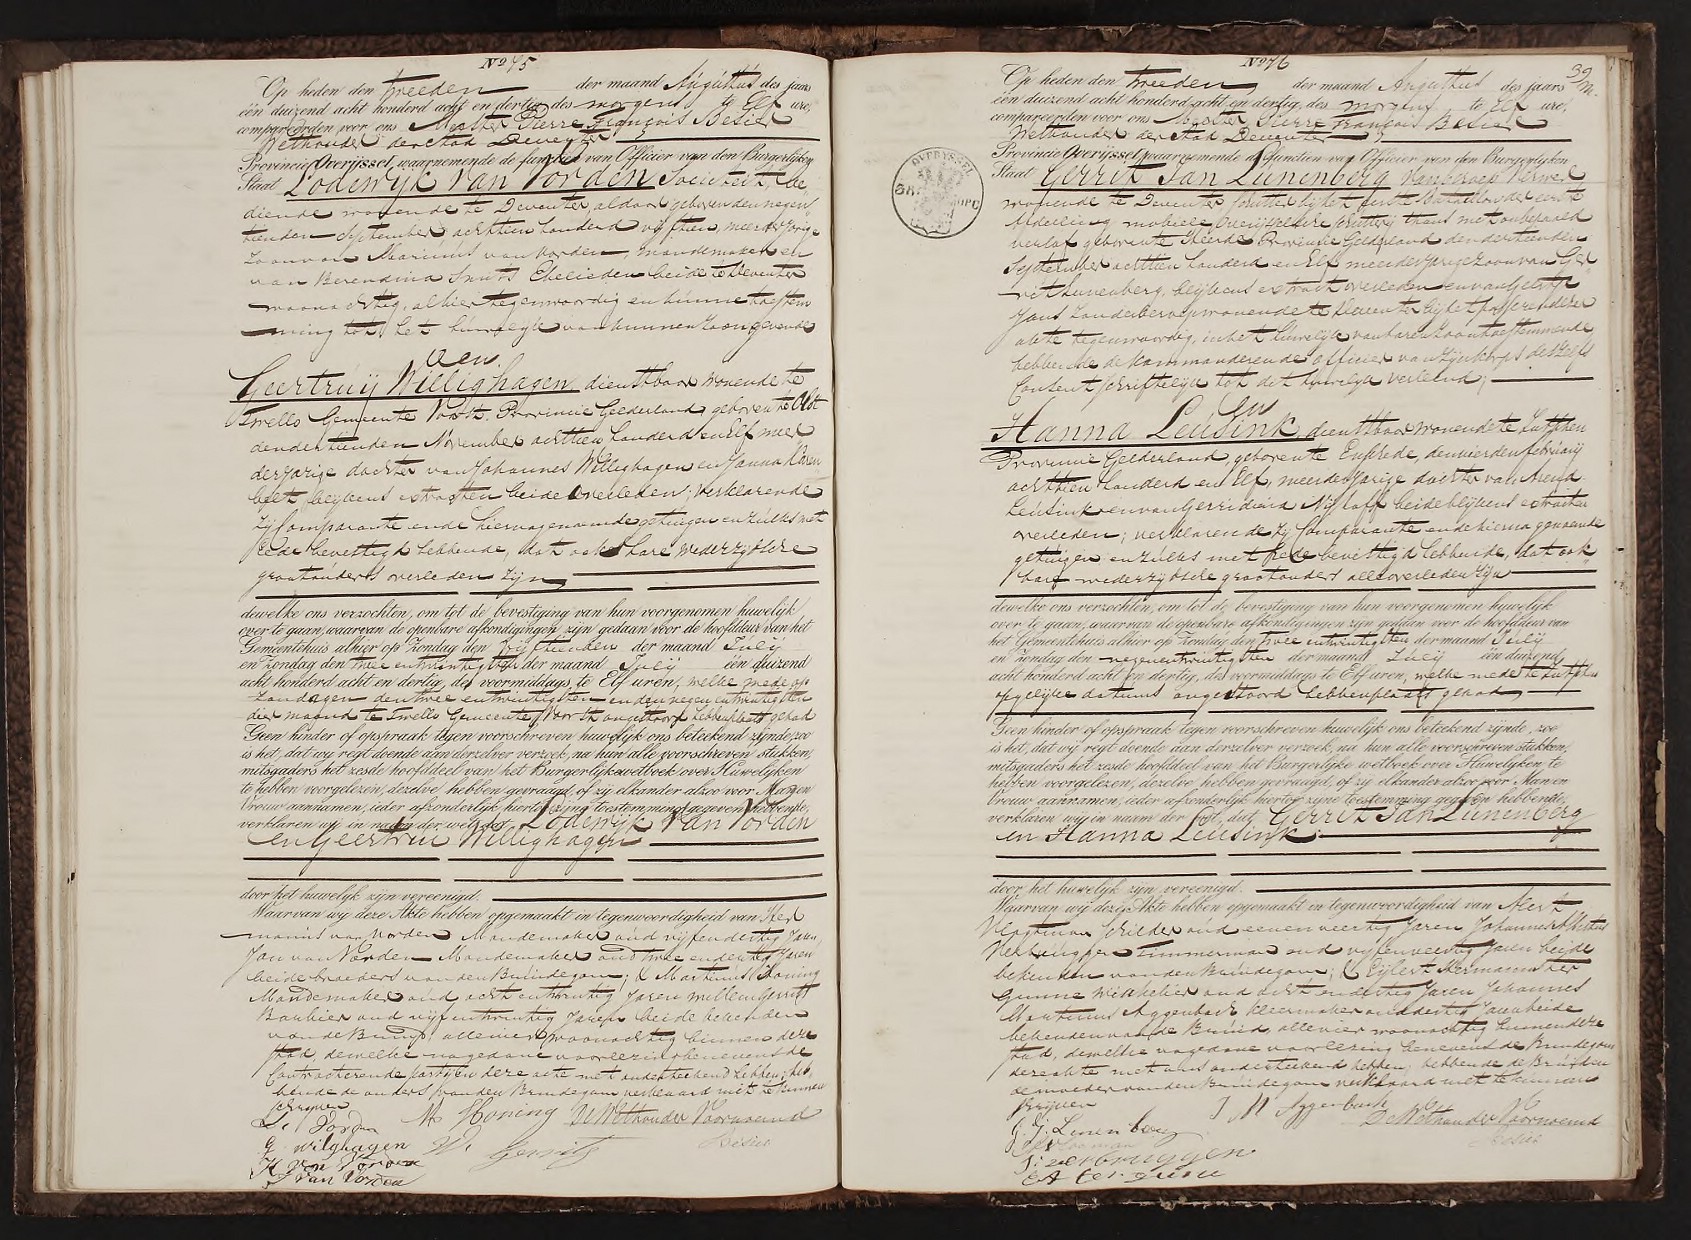 No 75
Op heden den tweeden der maand Augustus des jaars
één duizend acht honderd acht en dertig des morgens te Elf ure,
compareerden voor ons Meester Pierre François Besier
Wethouder der stad Deventer
Provincie Overijssel, waarnemende de functien van Officier van den Burgerlijken
Staat Lodewijk Van Vorden Societeit be„
diende wonende te Deventer, aldaar geboren den negen„
tienden September achttien honderd vijftien, meerderjarige
zoon van Marinus van Vorden, mandemaker en
van Berendina Smits Echelieden beide te Deventer
woonachtig, alhier tegenwoordig en hunne toestem
ming tot het huwelijk van hunnen zoon gevende
en
Geertruij Willighagen dienstbaar wonende te
Twello Gemeente Voorst, Provincie Gelderland geboren te Olst
den dertienden November achttien honderd en Elf meer
derjarige dochter van Johannes Willighagen en Janna
blijkens extracten beide overleden; verklarende
zij Comparante en de hierna genoemde getuigen en zulks met
Eede bevestigd hebbende, dat ook hare wederzijdsche
grootouders overleden zijn
dewelke ons verzochten, om tot de bevestiging van hun voorgenomen huwelijk
over te gaan, waarvan de openbare afkondigingen zijn gedaan voor de hoofddeur van het
Gemeentehuis alhier op Zondag den vijftienden der maand Julij
en Zondag den twee en twintigsten der maand Julij één duizend
acht honderd acht en dertig, des voormiddags te Elf uren, welke mede op
Zondagen den twee en twintigsten en den negen en twintigsten
dier maand te Twello Gemeente Voorst ongestoord hebben plaats gehad
Geen hinder of opspraak tegen voorschreven huwelijk ons beteekend zijnde, zoo
is het, dat wij regt doende aan derzelver verzoek, na hun alle voorschreven stukken,
mitsgaders het zesde hoofddeel van het Burgerlijke wetboek over Huwelijken
te hebben voorgelezen, dezelve hebben gevraagd, of zij elkander alzoo voor Man en
Vrouw aannamen, ieder afzonderlijk hiertoe zijne toestemming gegeven hebbende,
verklaren wij in naam der wet, dat Lodewijk Van Vorden
en Geertrui Willighagen
door het huwelijk zijn vereenigd.
Waarvan wij deze Akte hebben opgemaakt in tegenwoordigheid van Her
manus van Vorden Mandemaker oud vijf en dertig Jaren,
Jan van Vorden Mandemaker oud twee en dertig Jaren
beide broeders van den Bruidegom; & Martinus Honing
Mandemaker oud acht en twintig Jaren Willem Gerrits
Barbier oud vijf en twintig Jaren beide bekenden
van de Bruid, alle vier woonachtig binnen deze
stad, dewelke na gedane voorlezing benevens de
Contracterende partijen deze acte met ons onderteekend hebben, heb„
bende de ouders van den Bruidegom verklaard niet te kunnen
schrijven
L. V Vorden M Honing De Wethouder Voornoemd
G wilghagen W. Gerrits Besier
H van Vorden
J van Vorden
No 76
39
Op heden den tweeden der maand Augustus des jaars
één duizend acht honderd acht en dertig, des morgens te Elf ure,
compareerden voor ons Meester Pierre François Besier
Wethouder der stad Deventer
Provincie Overijssel, waarnemende de functien van Officier van den Burgerlijken
Staat Gerrit Jan Lunenberg van beroep Verwer
wonende te Deventer schutter bij het eerste Bataillon der eerste
Afdeeling mobiele Overijsselsche schutterij thans met onbepaald
verlof geboren te Heerde Provincie Gelderland den dertienden
September achttien honderd en Elf meerderjarige zoon van Ger
rit Lunenberg, blijkens extract overleden en van
Jans zonder beroep wonende te Deventer bij het passeren dezer
akte tegenwoordig, in het huwelijk van haren zoon toestemmende
hebbende de kommanderende officier van zijn korps deszelfs
Consent schriftelijk tot dit huwelijk verleend;
En
Hanna Leusink, dienstbaar wonende te Zutphen
Provincie Gelderland, geboren te Enschede, den vierden februarij
achttien honderd en Elf, meerderjarige dochter van Arend
Leusink en van Gerridina Nijhoff beide blijkens extracten
overleden; verklarende zij Comparante en de hierna genoemde
getuigen en zulks met Eede bevestigd hebbende, dat ook
hare wederzijdsche grootouders alle overleden zijn
dewelke ons verzochten, om tot de bevestiging van hun voorgenomen huwelijk
over te gaan, waarvan de openbare afkondigingen zijn gedaan voor de hoofddeur van
het Gemeentehuis alhier op Zondag den twee en twintigsten der maand Julij
en Zondag den negen en twintigsten der maand Julij één duizend
acht honderd acht en dertig, des voormiddags te Elf uren, welke mede te Zutphen
op gelijke datums ongestoord hebben plaats gehad
Geen hinder of opspraak tegen voorschreven huwelijk ons beteekend zijnde, zoo
is het, dat wij regt doende aan derzelver verzoek, na hun alle voorschreven stukken,
mitsgaders het zesde hoofddeel van het Burgerlijke wetboek over Huwelijken, te
hebben voorgelezen, dezelve hebben gevraagd, of zij elkander alzoo voor Man en
Vrouw aannamen, ieder afzonderlijk hiertoe zijne toestemming gegeven hebbende,
verklaren wij in naam der wet, dat Gerrit Jan Lunenberg
en Hanna Leusink
door het huwelijk zijn vereenigd.
Waarvan wij deze Akte hebben opgemaakt in tegenwoordigheid van Aert
Schilder oud eenen veertig Jaren Johannes Albertus
Timmerman oud vijf en veertig Jaren beide
bekenden van den Bruidegom; & Eijlert Hermannus ter
Gunne Winkelier oud acht en dertig Jaren Johannes
Martinus Aggenbach Kleermaker oud dertig Jaren beide
bekenden van de Bruid, alle vier woonachtig binnen deze
stad, dewelke na gedane voorlezing benevens de Bruidegom
deze akte met ons onderteekend hebben, hebbende de Bruid en
de moeder van den Bruidegom verklaard niet te kunnen
schrijven
G. J. Lunenberg J M Aggenbach De Wethouder Voornoemd
Besier
E H ter Gunne
OVERYSSEL